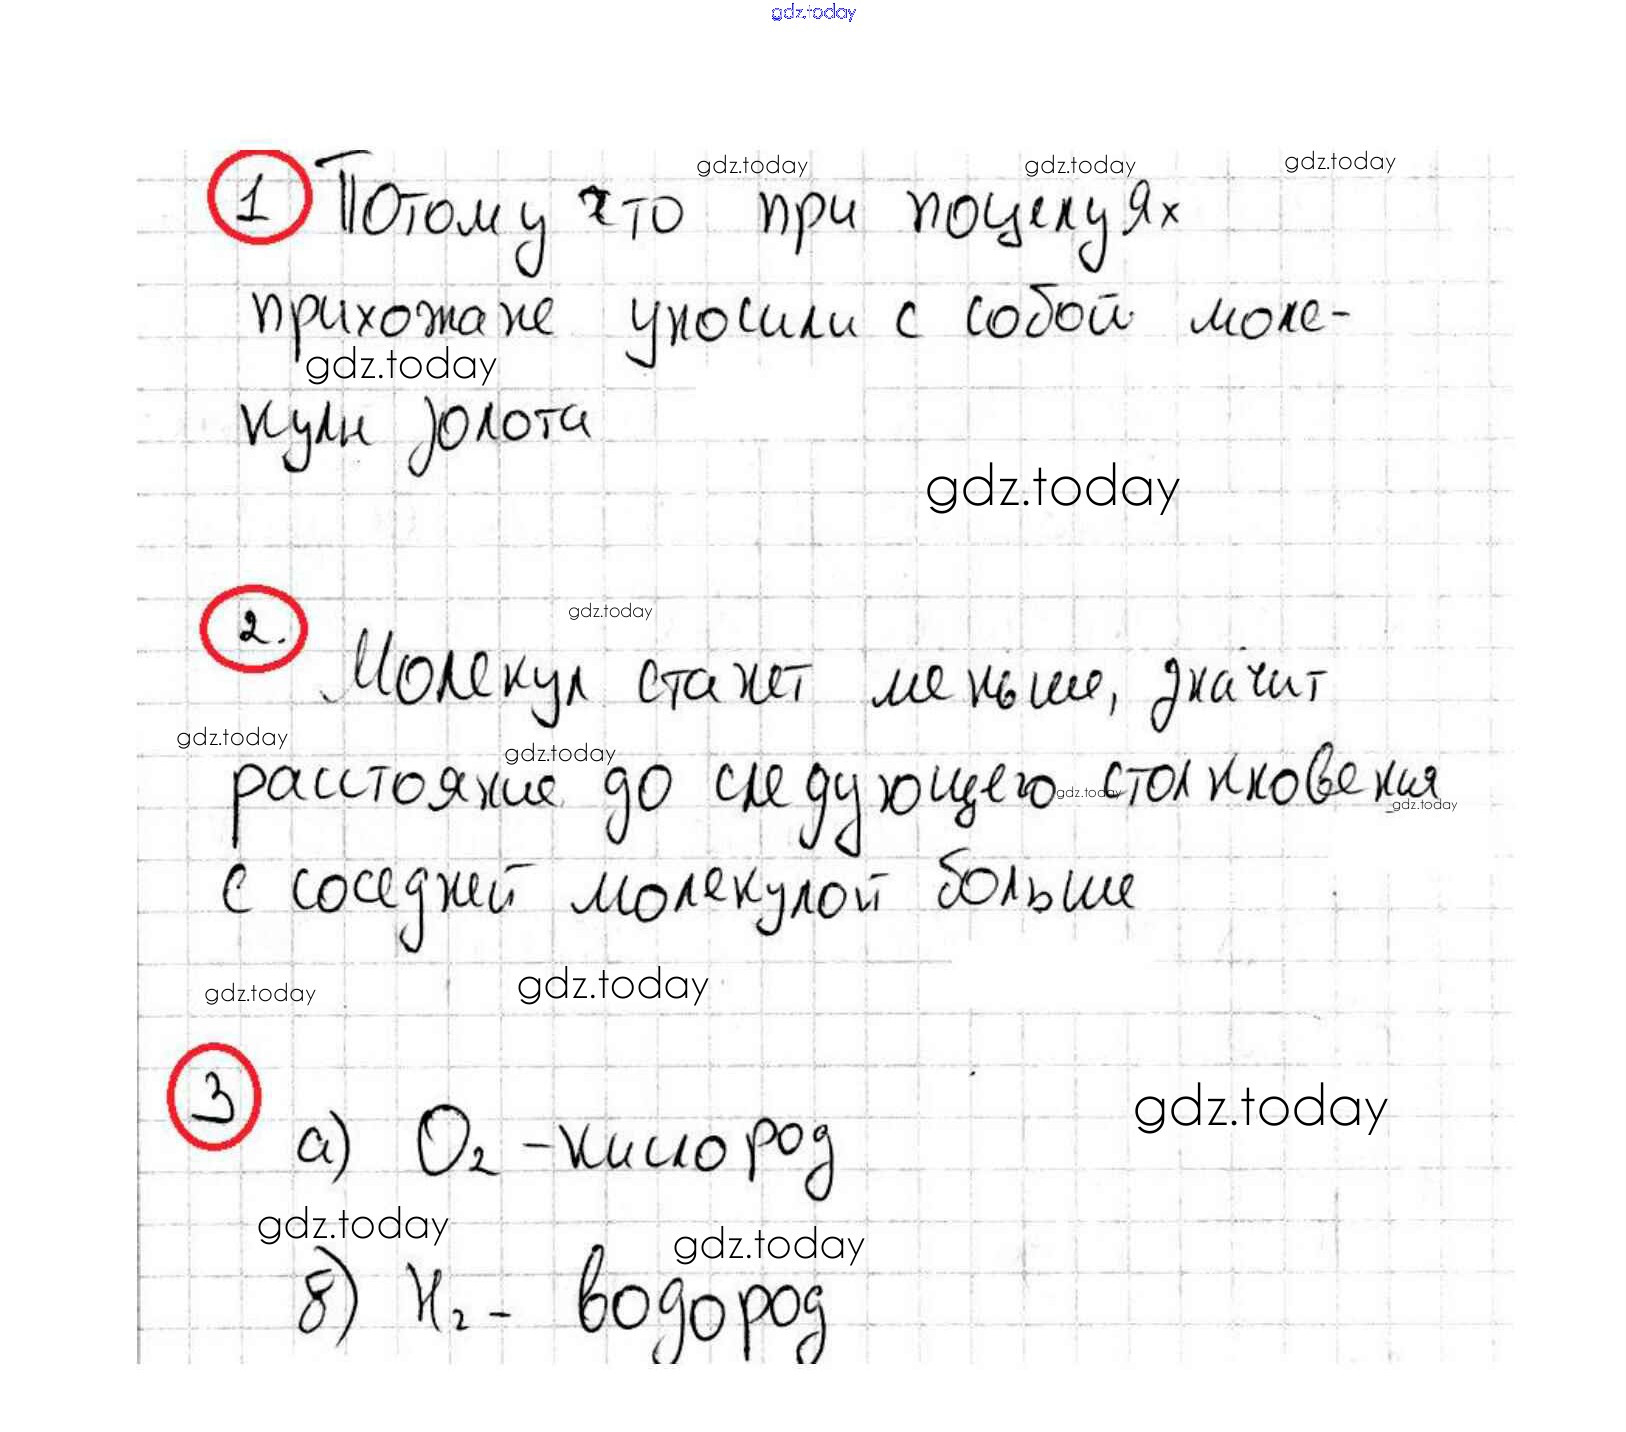 gdz.today
gdz.today gdz.today gdz.today
1 Потому что при поцелуях
прихожане уносили с собой моле-
gdz.today
кулы золота
gdz.today
2. gdz.today
Молекул станет меньше, значит
gdz.today gdz.today
расстояние до следующего столкновения
gdz.today gdz.today
с соседней молекулой больше
gdz.today gdz.today
3 gdz.today
а) O₂ - кислород
gdz.today gdz.today
б) H₂ - водород